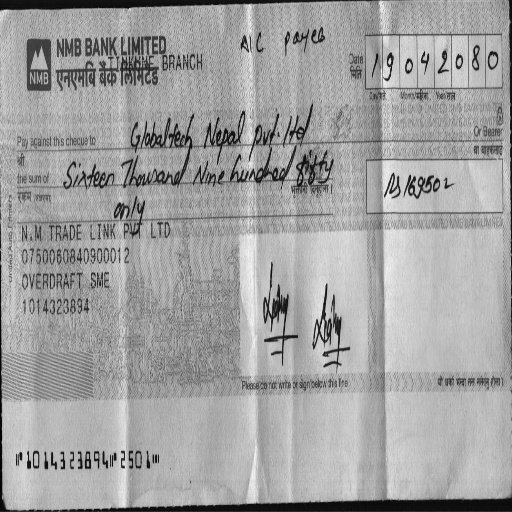 NMB BANK LIMITED
BRANCH
एनएमबि बैंक लिमिटेड
NMB
A/C payee
Date
मिति
1 9 0 4 2 0 8 0
Day/गते Month/महिना Year/साल
Pay against this cheque to Globaltech Nepal pvt. ltd Or Bearer
श्री वा वाहकलाई
the sum of Sixteen Thousand Nine hundred fifty
only
Rs 16950/-
N.M TRADE LINK PVT LTD
0750060840900012
OVERDRAFT SME
1014323894
Please do not write or sign below this line
⑈1014323894⑈2501⑈